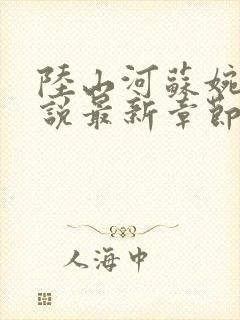 陸山河蘇婉
說最新章節
人海中